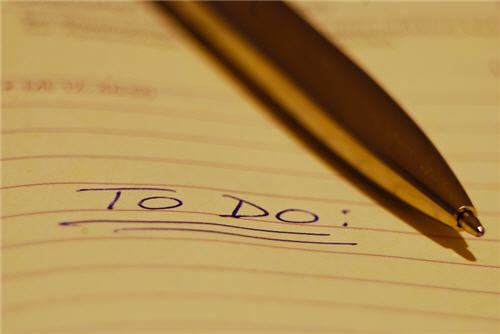 TO DO: